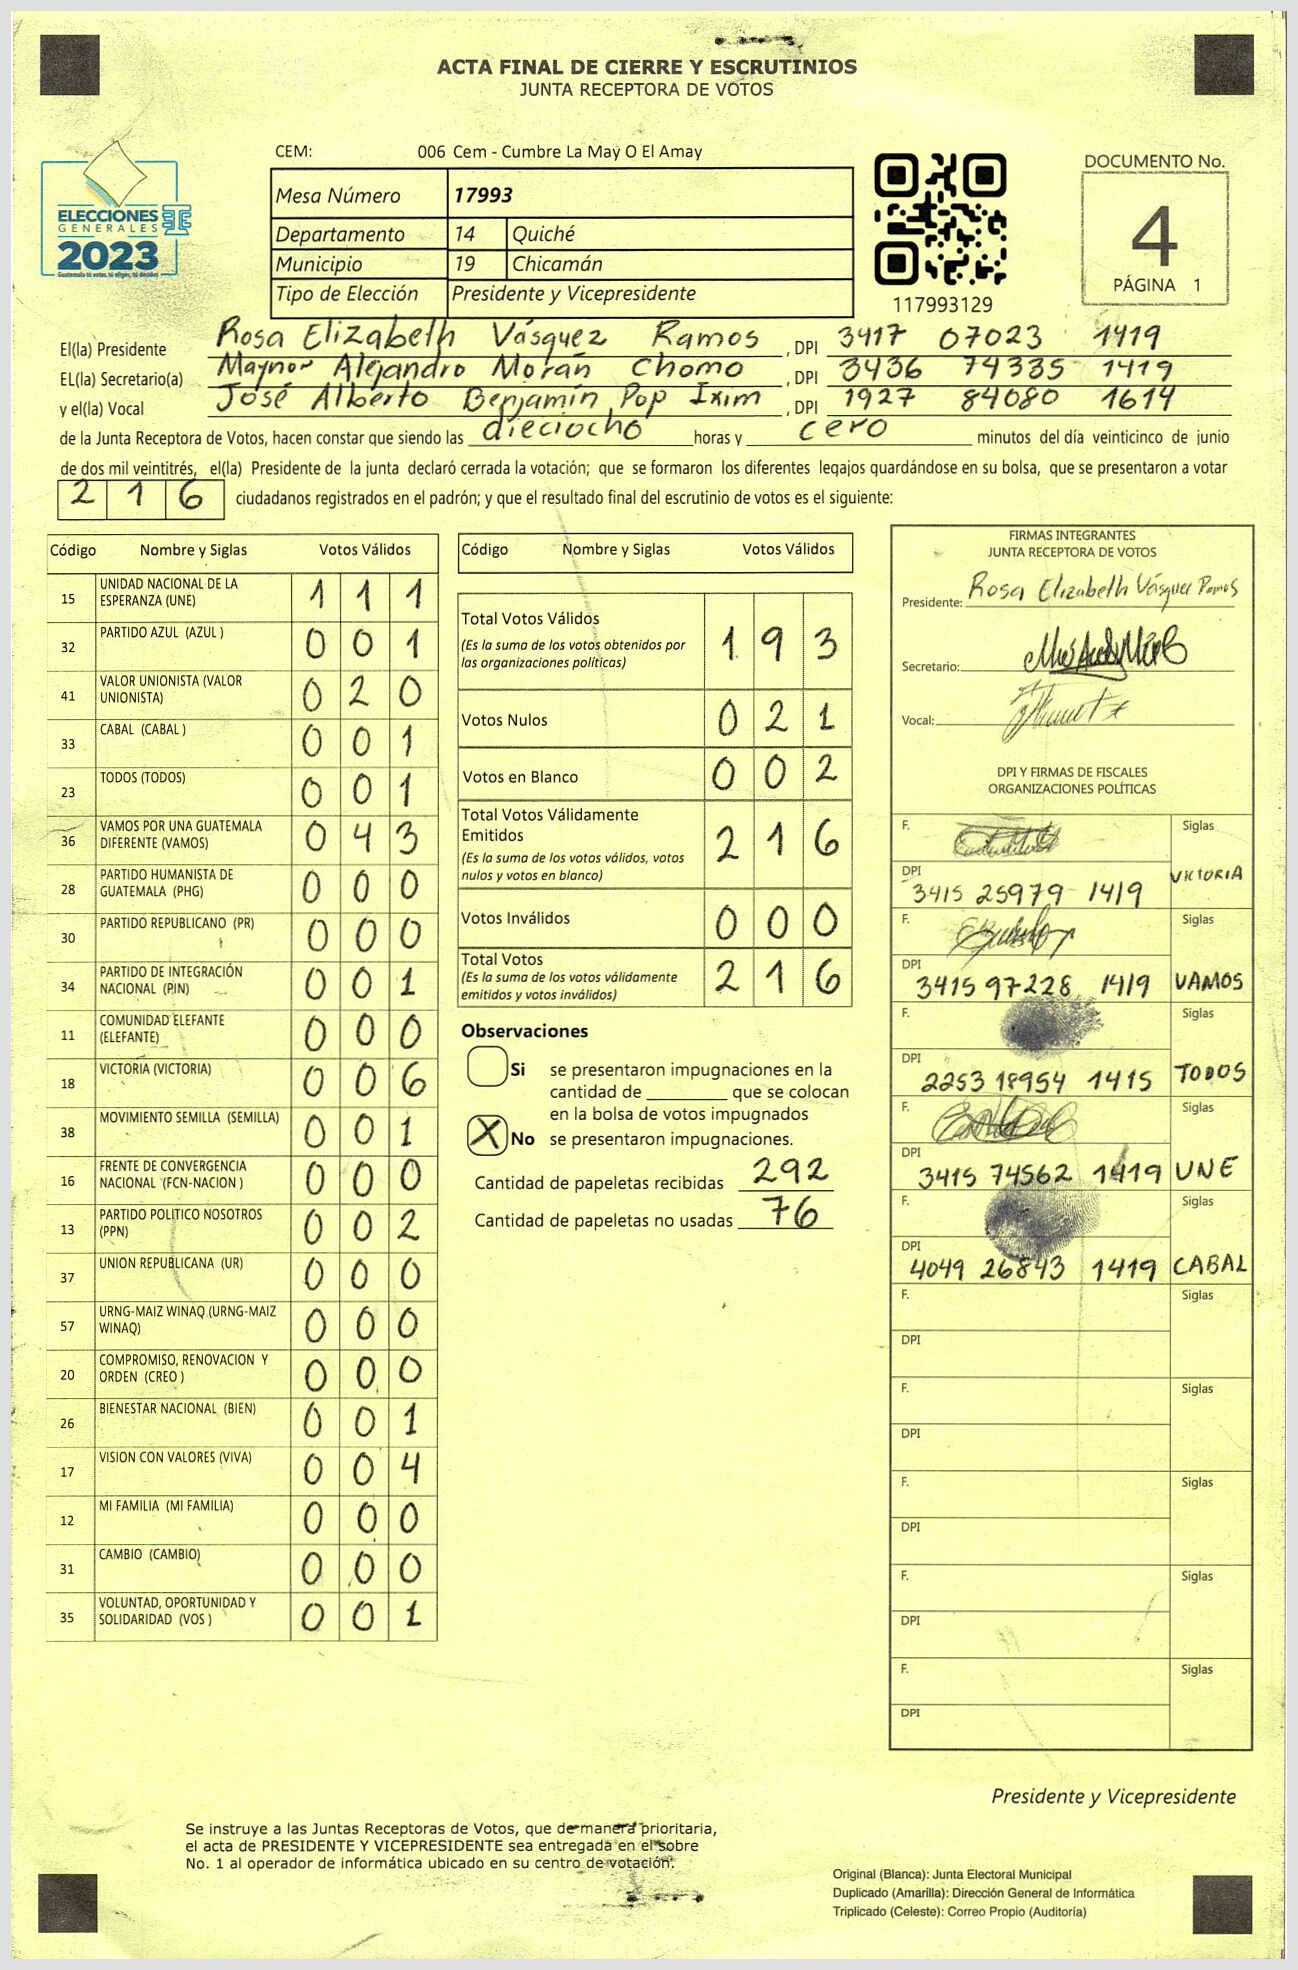 ACTA FINAL DE CIERRE Y ESCRUTINIOS
JUNTA RECEPTORA DE VOTOS
CEM: 006 Cem - Cumbre La May O El Amay
ELECCIONES
GENERALES
2023
Mesa Número 17993
Departamento 14 Quiché
Municipio 19 Chicamán
Tipo de Elección Presidente y Vicepresidente
117993129
DOCUMENTO No.
4
PÁGINA 1
El(la) Presidente Rosa Elizabeth Vásquez Ramos , DPI 3417 07023 1419
EL(la) Secretario(a) Maynor Alejandro Morán Chomo , DPI 3436 74335 1419
y el(la) Vocal José Alberto Benjamín Pop Ixim , DPI 1927 84080 1614
de la Junta Receptora de Votos, hacen constar que siendo las dieciocho horas y cero minutos del día veinticinco de junio
de dos mil veintitrés, el(la) Presidente de la junta declaró cerrada la votación; que se formaron los diferentes legajos guardándose en su bolsa, que se presentaron a votar
216 ciudadanos registrados en el padrón; y que el resultado final del escrutinio de votos es el siguiente:
Código Nombre y Siglas Votos Válidos
15 UNIDAD NACIONAL DE LA ESPERANZA (UNE) 1 1 1
32 PARTIDO AZUL (AZUL ) 0 0 1
41 VALOR UNIONISTA (VALOR UNIONISTA) 0 2 0
33 CABAL (CABAL ) 0 0 1
23 TODOS (TODOS) 0 0 1
36 VAMOS POR UNA GUATEMALA DIFERENTE (VAMOS) 0 4 3
28 PARTIDO HUMANISTA DE GUATEMALA (PHG) 0 0 0
30 PARTIDO REPUBLICANO (PR) 0 0 0
34 PARTIDO DE INTEGRACIÓN NACIONAL (PIN) 0 0 1
11 COMUNIDAD ELEFANTE (ELEFANTE) 0 0 0
18 VICTORIA (VICTORIA) 0 0 6
38 MOVIMIENTO SEMILLA (SEMILLA) 0 0 1
16 FRENTE DE CONVERGENCIA NACIONAL (FCN-NACION ) 0 0 0
13 PARTIDO POLITICO NOSOTROS (PPN) 0 0 2
37 UNION REPUBLICANA (UR) 0 0 0
57 URNG-MAIZ WINAQ (URNG-MAIZ WINAQ) 0 0 0
20 COMPROMISO, RENOVACION Y ORDEN (CREO ) 0 0 0
26 BIENESTAR NACIONAL (BIEN) 0 0 1
17 VISION CON VALORES (VIVA) 0 0 4
12 MI FAMILIA (MI FAMILIA) 0 0 0
31 CAMBIO (CAMBIO) 0 0 0
35 VOLUNTAD, OPORTUNIDAD Y SOLIDARIDAD (VOS ) 0 0 1
Código Nombre y Siglas Votos Válidos
Total Votos Válidos
(Es la suma de los votos obtenidos por
las organizaciones políticas) 1 9 3
Votos Nulos 0 2 1
Votos en Blanco 0 0 2
Total Votos Válidamente
Emitidos
(Es la suma de los votos válidos, votos
nulos y votos en blanco) 2 1 6
Votos Inválidos 0 0 0
Total Votos
(Es la suma de los votos válidamente
emitidos y votos inválidos) 2 1 6
Observaciones
Si se presentaron impugnaciones en la
cantidad de ________ que se colocan
en la bolsa de votos impugnados
X No se presentaron impugnaciones.
Cantidad de papeletas recibidas 292
Cantidad de papeletas no usadas 76
FIRMAS INTEGRANTES
JUNTA RECEPTORA DE VOTOS
Presidente: Rosa Elizabeth Vásquez Ramos
Secretario:
Vocal:
DPI Y FIRMAS DE FISCALES
ORGANIZACIONES POLÍTICAS
F. Siglas
DPI 3415 25979 1419 VICTORIA
F. Siglas
DPI 3415 97228 1419 VAMOS
F. Siglas
DPI 2253 18954 1415 TODOS
F. Siglas
DPI 3415 74562 1419 UNE
F. Siglas
DPI 4049 26843 1419 CABAL
F. Siglas
DPI
F. Siglas
DPI
F. Siglas
DPI
F. Siglas
DPI
F. Siglas
DPI
Presidente y Vicepresidente
Se instruye a las Juntas Receptoras de Votos, que de manera prioritaria,
el acta de PRESIDENTE Y VICEPRESIDENTE sea entregada en el sobre
No. 1 al operador de informática ubicado en su centro de votación.
Original (Blanca): Junta Electoral Municipal
Duplicado (Amarilla): Dirección General de Informática
Triplicado (Celeste): Correo Propio (Auditoría)